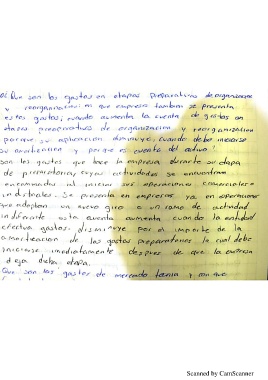 Que son los gastos en etapas preparativas de organización
y reorganización: en que empresa tambien se presenta
estos gastos, cuando aumenta la cuenta de gastos en
etapas preoperativos de organización y reorganización
porque su aplicación disminuye, cuando debe iniciarse
su amortización y porque es cuenta del activo?
son los gastos que hace la empresa durante su etapa
de preparatoria, cuyas actividades se encuentran
encaminadas al iniciar sus operaciones comerciales o
industriales. Se presenta en empresas ya en operaciones
que adoptan un nuevo giro o un ramo de actividad
indistinta esta cuenta aumenta cuando la entidad
efectua gastos, disminuye por el importe de la
amortización de los gastos preparatorios la cual debe
iniciarse inmediatamente despues de que la empresa
deja dicha etapa.
Que son los gastos de mercado tecnia y con que
Scanned by CamScanner